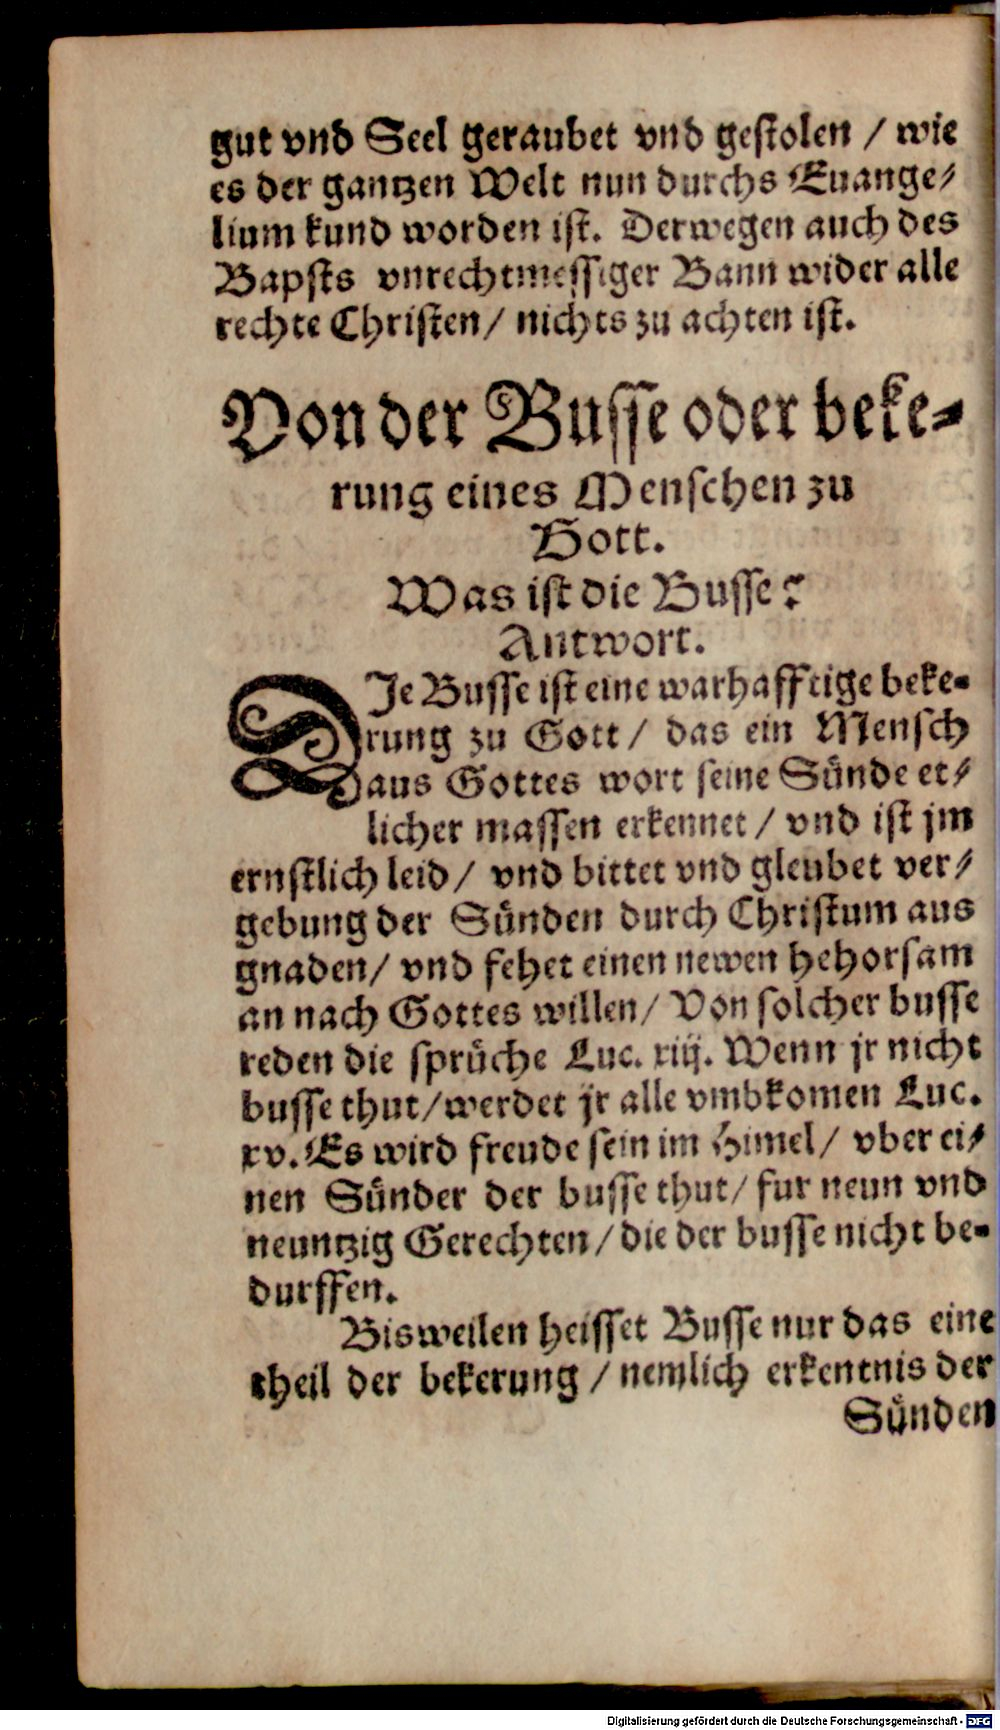 gut vnd Seel geraubet vnd gestolen / wie
es der gantzen Welt nun durchs Euange⸗
lium kund worden ist. Derwegen auch des
Bapsts vnrechtmessiger Bann wider alle
rechte Christen / nichts zu achten ist.
Von der Busse oder beke⸗
rung eines Menschen zu
Gott.
Was ist die Busse?
Antwort.
DJe Busse ist eine warhafftige beke⸗
rung zu Gott / das ein Mensch
aus Gottes wort seine Sünde et⸗
licher massen erkennet / vnd ist jm
ernstlich leid / vnd bittet vnd gleubet ver⸗
gebung der Sünden durch Christum aus
gnaden / vnd fehet einen newen hehorsam
an nach Gottes willen / Von solcher busse
reden die sprüche Luc. xiij. Wenn jr nicht
busse thut / werdet jr alle vmbkomen Luc.
xv. Es wird freude sein im Himel / vber ei⸗
nen Sünder der busse thut / fur neun vnd
neuntzig Gerechten / die der busse nicht be⸗
durffen.
Bisweilen heisset Busse nur das eine
theil der bekerung / nemlich erkentnis der
Sünden
Digitalisierung gefördert durch die Deutsche Forschungsgemeinschaft - DFG